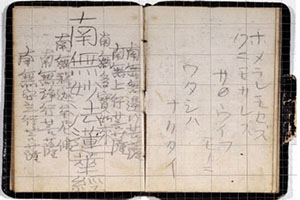 ホメラレモセズ
クニモサレズ
サウイフ
モノニ
ワタシハ
ナリタイ
南無無辺行菩薩
南無上行菩薩
南無多宝如来
南無妙法蓮華経
南無釈迦牟尼仏
南無浄行菩薩
南無安立行菩薩